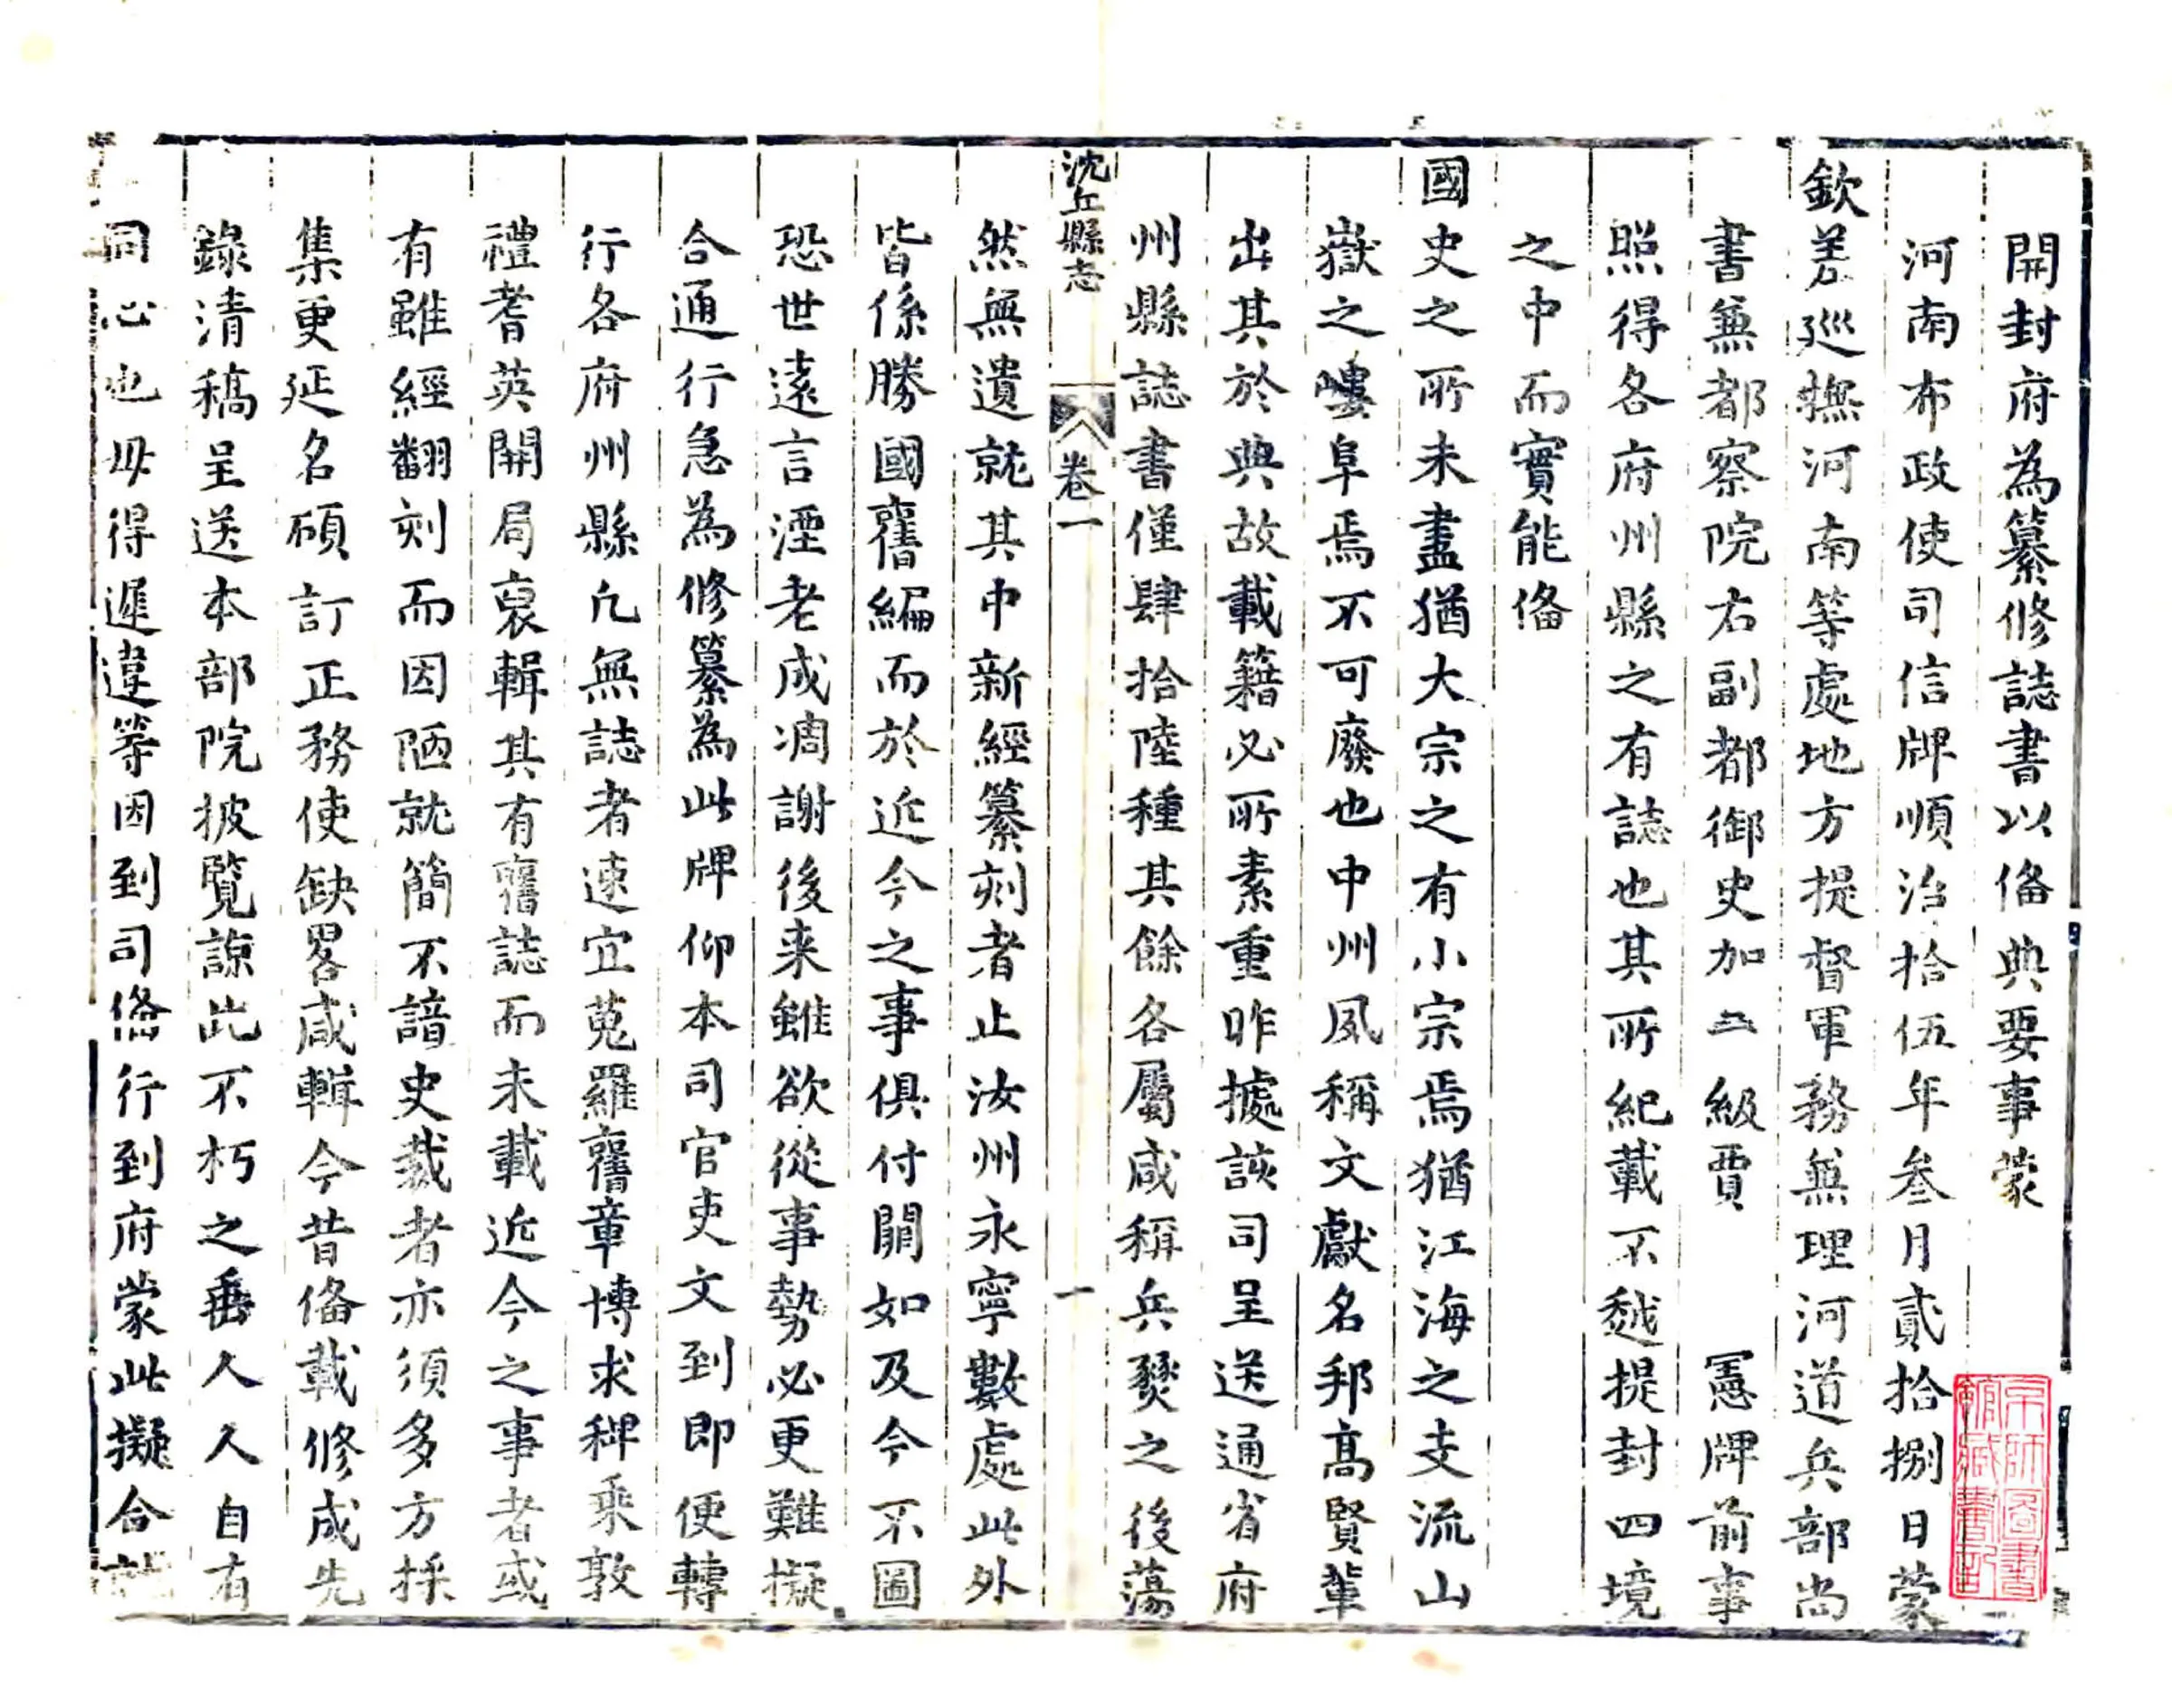 開封府為纂修誌書以俻典要事蒙
河南布政使司信牌順治拾伍年叁月貳拾捌日蒙
欽差廵撫河南等處地方提督軍務兼理河道兵部尚
書兼都察院右副都御史加二級賈 憲牌前事
照得各府州縣之有誌也其所紀載不越提封四境
之中而實能俻
國史之所未盡猶大宗之有小宗焉猶江海之支流山
嶽之嶁阜焉不可廢也中州夙稱文獻名邦髙賢輩
出其於典故載籍必所素重昨據該司呈送通省府
州縣誌書僅肆拾陸種其餘各屬咸稱兵燹之後蕩
沈丘縣志 卷一 一
然無遺就其中新經纂刻者止汝州永寧數處此外
皆係勝國舊編而於近今之事俱付闕如及今不圖
恐世遠言湮老成凋謝後来雖欲從事勢必更難擬
合通行急為修纂為此牌仰本司官吏文到即便轉
行各府州縣凡無誌者速宜蒐羅舊章博求稗乘敦
禮耆英開局裒輯其有舊誌而未載近今之事者或
有雖經翻刻而因陋就簡不諳史裁者亦須多方採
集更延名碩訂正務使缺畧咸輯今昔俻載修成先
錄清稿呈送本部院披覧諒此不朽之垂人人自有
同心也毋得遲違等因到司俻行到府蒙此擬合就